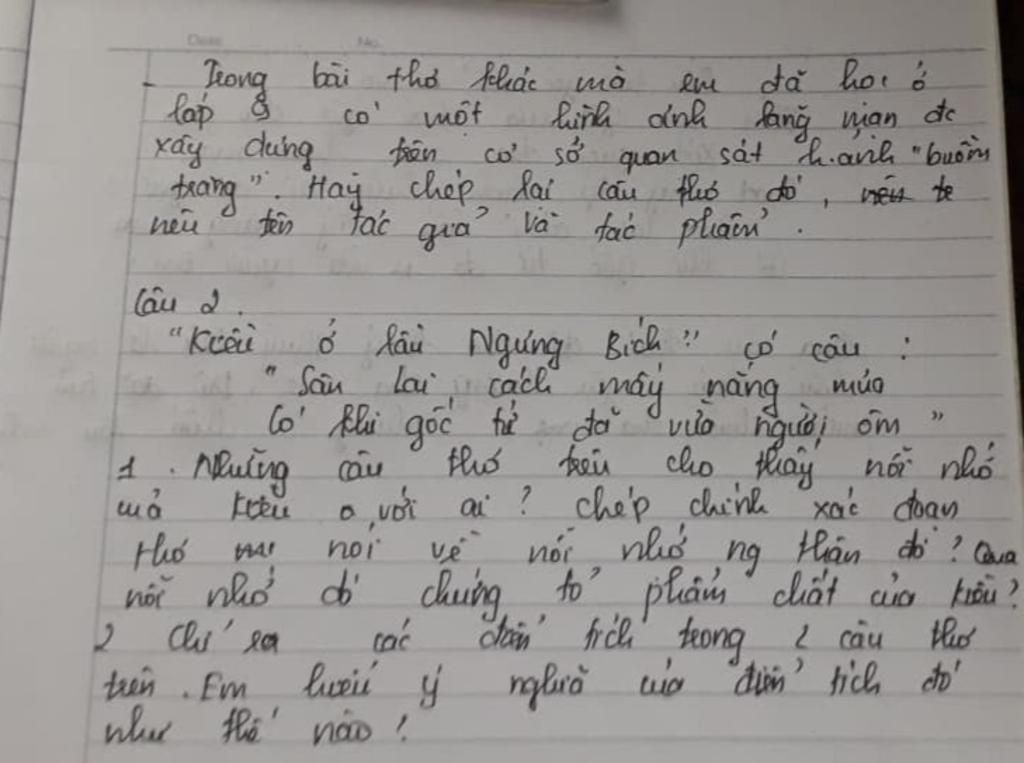 Date No.
- Trong bài thơ khác mà em đã học ở
lớp 8 có một hình ảnh lãng mạn đc
xây dựng trên cơ sở quan sát h.ảnh "buồm
trăng". Hãy chép lại câu thơ đó, nêu te
nêu tên tác giả và tác phẩm.
Câu 2.
"Kiều ở lầu Ngưng Bích" có câu :
"Sân Lai cách mấy nắng mưa
Có khi gốc tử đã vừa người ôm"
1. Những câu thơ trên cho thấy nỗi nhớ
của Kiều với ai ? chép chính xác đoạn
thơ nói về nỗi nhớ ng thân đó ? Qua
nỗi nhớ đó chứng tỏ phẩm chất của Kiều ?
2 Chỉ ra các điển tích trong 2 câu thơ
trên. Em hiểu ý nghĩa của điển tích đó
như thế nào ?